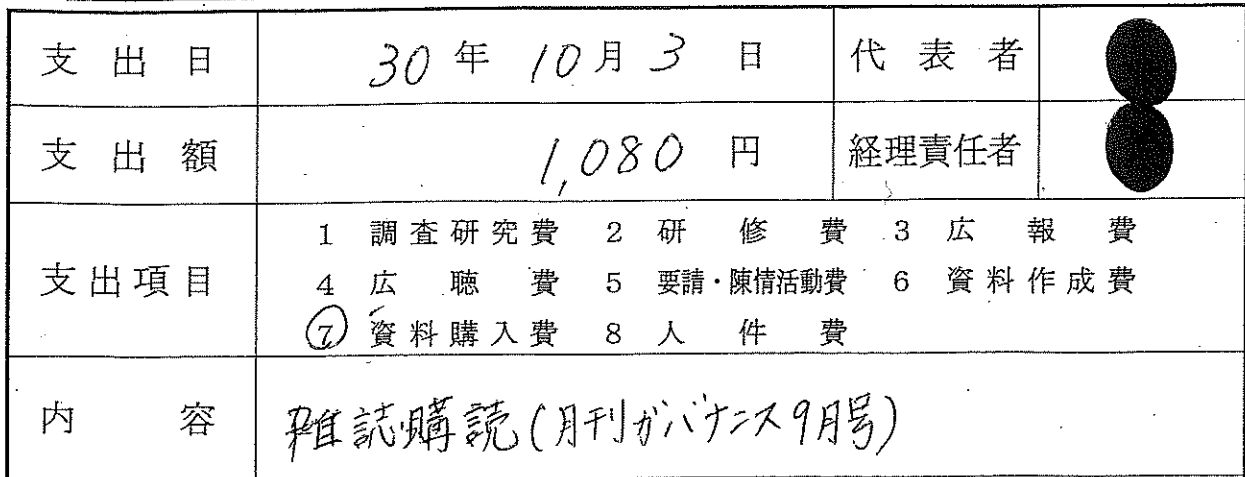 支出日 30年10月3日 代表者
支出額 1,080円 経理責任者
支出項目 1 調査研究費 2 研修費 3 広報費
4 広聴費 5 要請・陳情活動費 6 資料作成費
⑦ 資料購入費 8 人件費
内容 雑誌購読(月刊ガバナンス9月号)